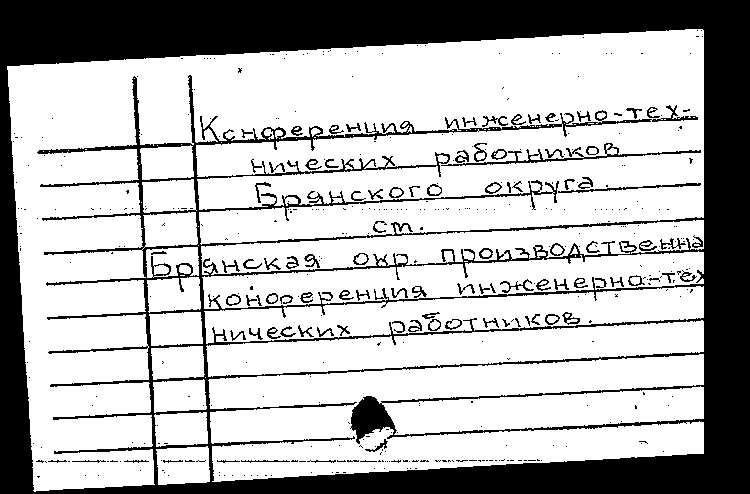 Конференция инженерно-тех-
нических работников
Брянского округа.
ст.
Брянская окр. производственна
конференция инженерно-тех
нических работников.